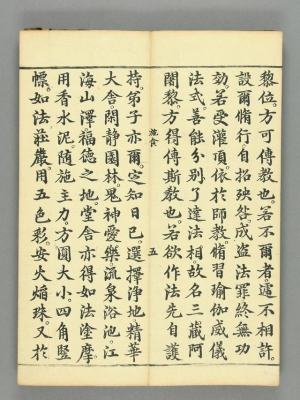 黎位。方可傳教也。若不爾者遞不相許。
設爾脩行自招殃咎。成盜法罪終無功
効。若受灌頂。依於師教。脩習瑜伽威儀
法式。善能分別了達法相。故名三藏阿
闍黎。方得傳斯教也。若欲作法先自護
施食 五
持。弟子亦爾。定知日已。選擇淨地。精華
大舍。閑靜園林。鬼神愛樂。流泉浴池。江
海山澤。福德之地。堂舍亦得。如法塗摩
用香水泥。隨施主力。方圓大小。四角豎
標。如法莊嚴。用五色彩。安火焰珠。又於